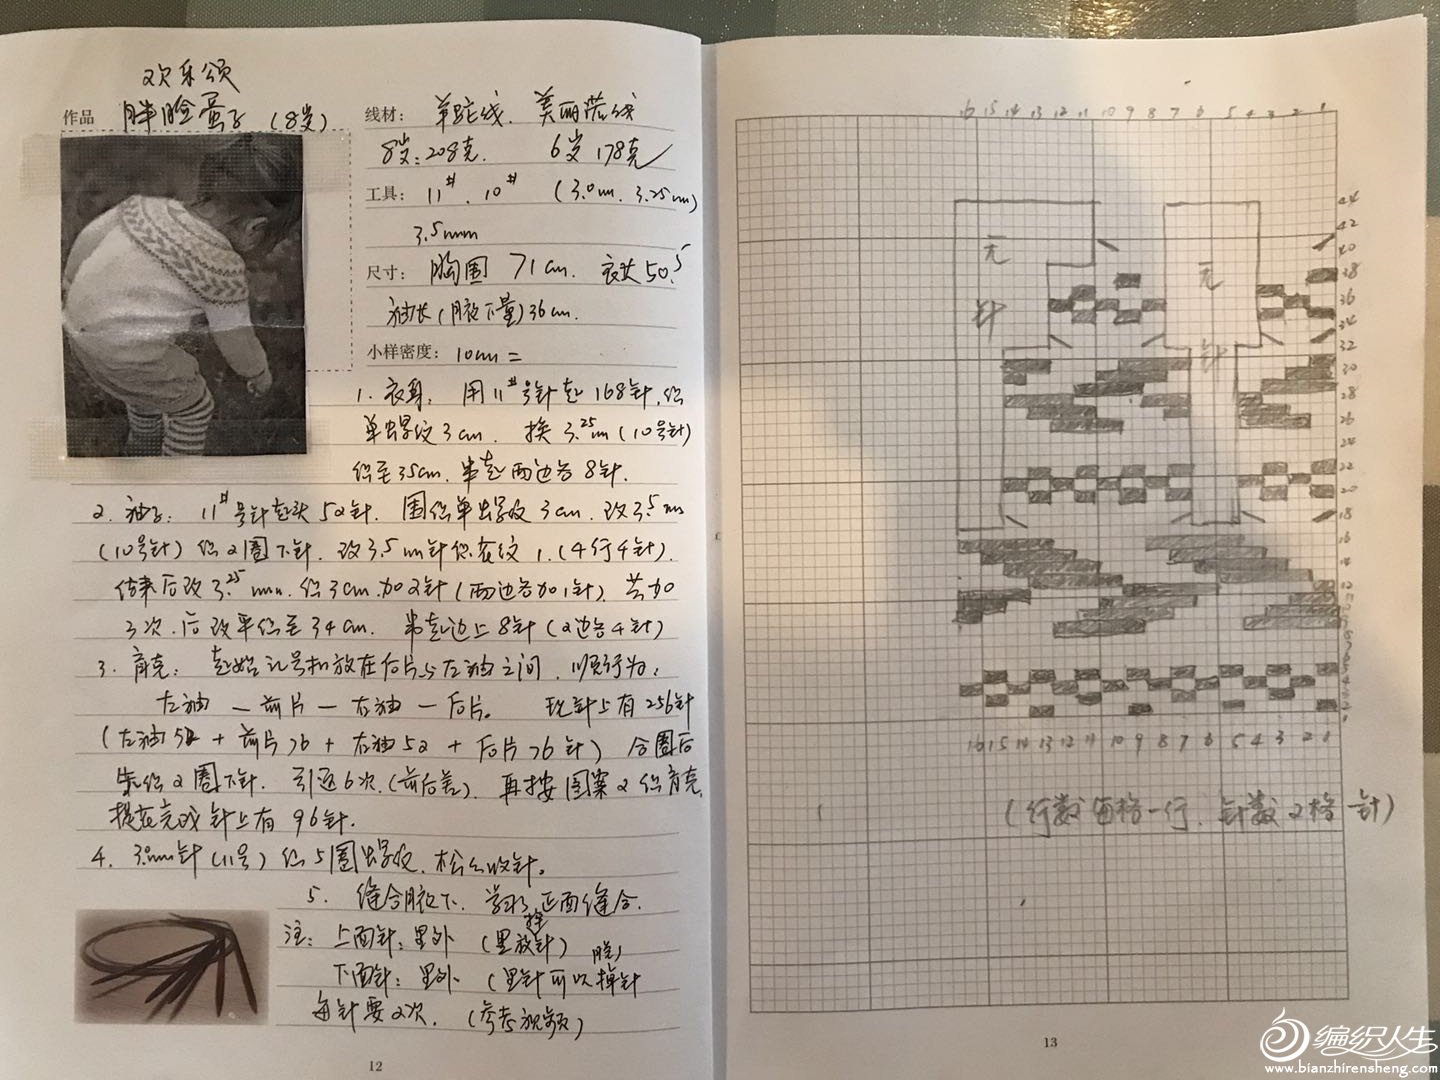 欢乐颂
作品 胖脸蛋子（8岁）
线材： 羊驼线. 美丽诺线
8岁：208克. 6岁178克
工具： 11#. 10# （3.0m. 3.25m）
3.5mm
尺寸： 胸围 71cm. 衣长50.5
袖长（腋下量）36cm.
小样密度： 10cm =
1. 衣身. 用11#号针起168针. 织
单螺纹3cm. 换3.25m（10号针）
织至35cm. 串起两边各8针.
2. 袖子： 11#号针起头52针. 围织单螺纹3cm. 改3.5m
（10号针）织2圈下针. 改3.5m针织花纹1.（4行4针）.
结束后改3.25mm. 织3cm加2针（两边各加1针）. 共加
3次. 后改平织至34cm. 串起边上8针（2边各4针）
3. 育克： 起始记号扣放在后片与左袖之间. 顺序为：
左袖 — 前片 — 右袖 — 后片。 现针上有256针
（左袖52 + 前片76 + 右袖52 + 后片76针） 合圈后
先织2圈下针. 引返6次.（前后差）. 再按图案2织育克.
提花完成针上有96针.
4. 3.0mm针（11号）织5圈螺纹. 松松收针。
5. 缝合腋下. 正面缝合.
注： 上面针：里外 （里放针）
下面针：里外 （里针可以掉针
每针要2次. （参考视频）
12
16 15 14 13 12 11 10 9 8 7 6 5 4 3 2 1
44
42
40
38
36
34
32
30
28
26
24
22
20
18
16
14
12
无
针
无
针
16 15 14 13 12 11 10 9 8 7 6 5 4 3 2 1
（行数每格一行. 针数2格一针）
13
编织人生
www.bianzhirensheng.com